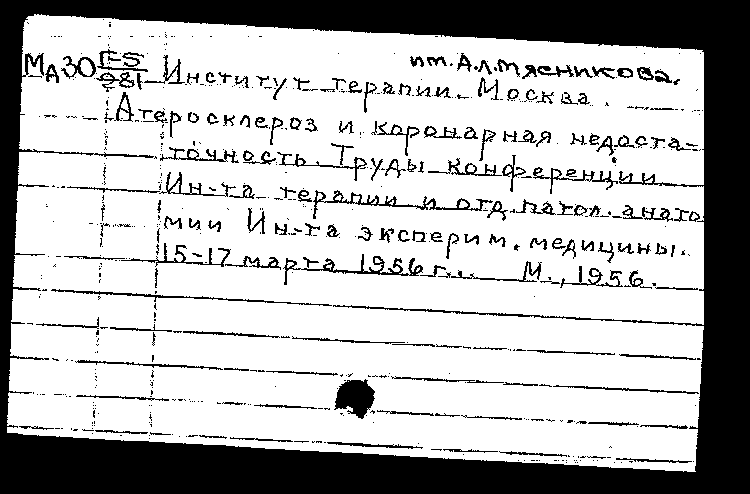 им. А.Л. Мясникова.
МА30 Е5/981 Институт терапии. Москва.
Атеросклероз и коронарная недоста-
точность. Труды конференции
Ин-та терапии и отд. патол. анато
мии Ин-та эксперим. медицины.
15-17 марта 1956 г... М., 1956.